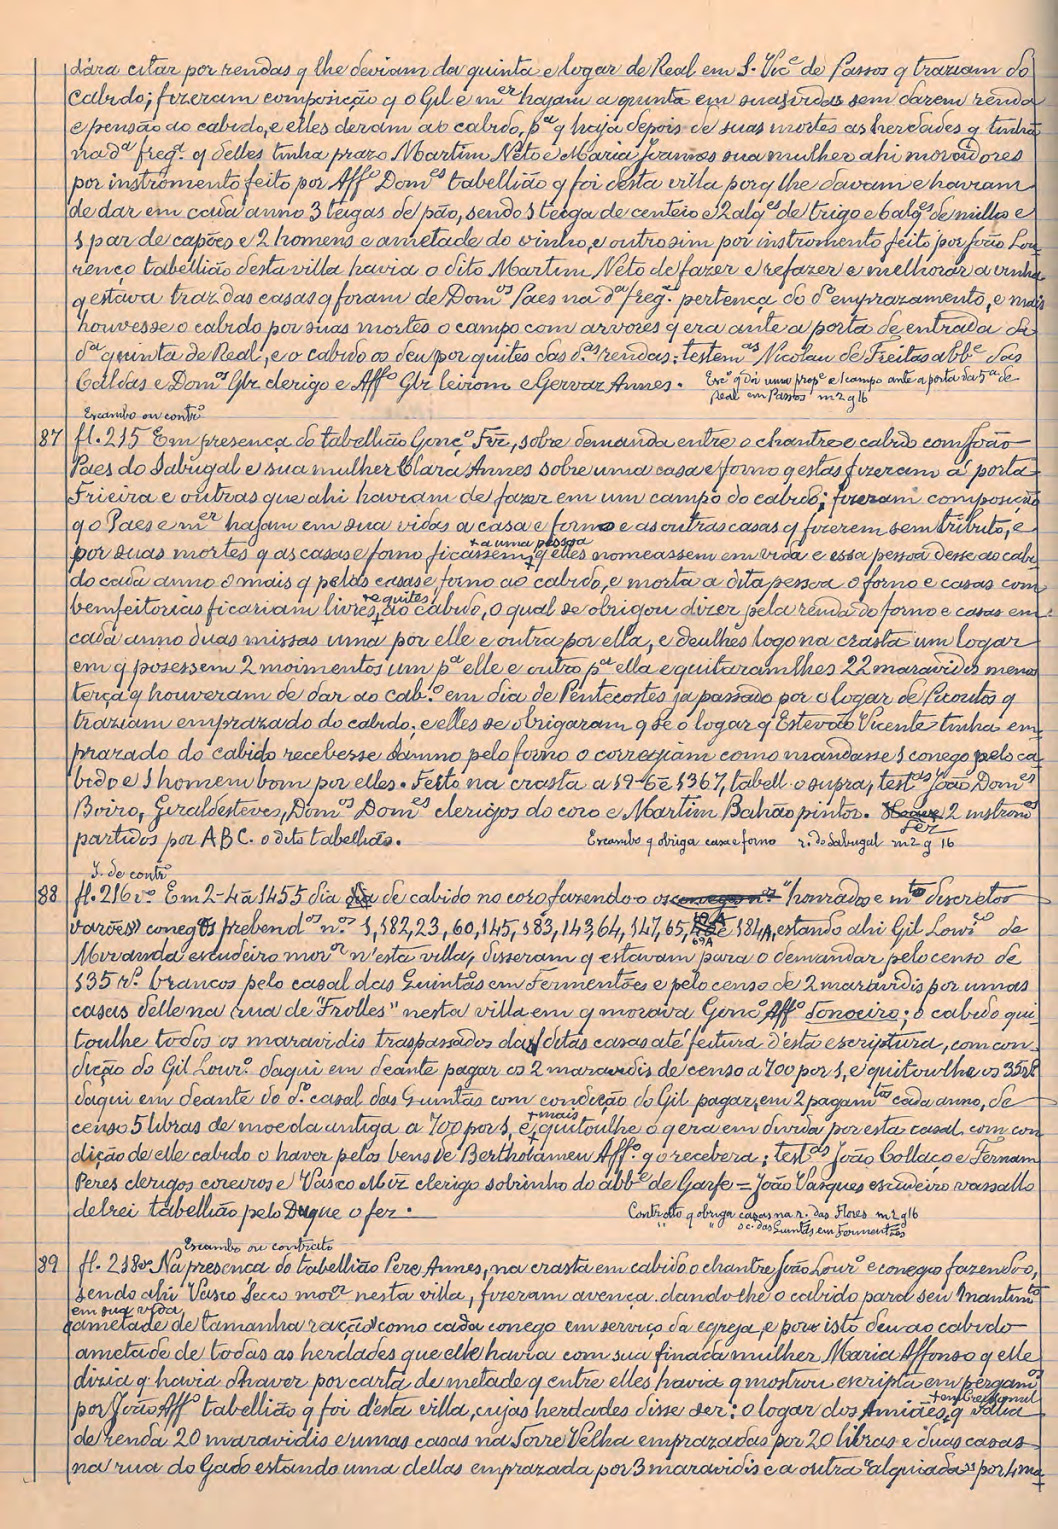 dára citar por rendas q lhe deviam da quinta e logar de Real em S. Vic.e de Passos q traziam do
cabido; fizeram composição q o Gil e m.er hajam a quinta em suas vidas sem darem renda
e pensão ao cabido, e elles deram ao cabido, p.a q haja depois de suas mortes as herdades q tinha
na d.a freg.a q delles tinha prazo Martim Neto e Maria Joannes sua mulher ahi moradores
por instromento feito por Aff.o Dom.es tabellião q foi desta villa porq lhe davam e haviam
de dar em cada anno 3 teigas de pão, sendo 1 teiga de centeio e 2 alq.es de trigo e 6 alq.es de milho e
1 par de capões e 2 homens e ametade do vinho, e outrosim por instromento feito por João Lou
renço tabellião desta villa havia o dito Martim Neto de fazer e refazer e melhorar a vinha
q estava traz das casas q foram de Dom.os Paes na d.a freg.a pertença do d.o emprazamento, e mais
houvesse o cabido por suas mortes o campo com arvores q era ante a porta de entrada da
d.a quinta de Real, e o cabido os deu por quites das d.as rendas: testem.as Nicolau de Freitas abb.e das
Caldas e Dom.os Glz clerigo e Aff.o Glz leirom e Gervaz Annes. Esc.o q dá uma prop.e e 1 campo ante a porta da 5.a de
Real em Passos m 2 g 16
Escambo ou contr.o
87 fl. 215 Em presença do tabellião Gonç.o Frz, sobre demanda entre o chantre e cabido com João
Paes do Sabugal e sua mulher Clara Annes sobre uma casa e forno q estas fizeram á porta
Frieira e outras que ahi haviam de fazer em um campo do cabido; fizeram composição
q o Paes e m.er hajam em sua vidas a casa e forno e as outras casas q fizerem sem tributo, e
+ a uma pessoa
por suas mortes q as casas e forno ficassem, q elles nomeassem em vida e essa pessoa desse ao cabi
do cada anno o mais q pelas casas e forno ao cabido, e morta a dita pessoa o forno e casas com
e quites
bemfeitorias ficariam livres, ao cabido, o qual se obrigou dizer pela renda do forno e casas em
cada anno duas missas uma por elle e outra por ella, e deulhes logo na crasta um logar
em q posessem 2 moimentos um p.a elle e outro p.a ella e quitaramlhes 22 maravidis menos
terça q houveram de dar ao cab.o em dia de Pentecostes ja passado por o logar de Picoutos q
traziam emprazado do cabido; e elles se obrigaram q se o logar q Estevão Vicente tinha em
prazado do cabido recebesse damno pelo forno o corregiam como mandasse 1 conego pelo ca
bido e 1 homem bom por elles. Feito na crasta a 19-6 ē 1367, tabell. o supra, test.as João Dom.es
Boiro, Giraldesteves, Dom.os Dom.es clerigos do coro e Martim Bahão pintor. Fez 2 instrom.os
partidos por A B C. o dito tabellião. Escambo q obriga casa e forno r. do Sabugal m 2 g 16
I. de contr.o
88 fl. 216 v.o Em 2-4 ā 1455 dia de cabido no coro fazendo-o os "honrados e m.to discretos
varões" conegos prebend.os n.os 1, 182, 23, 60, 145, 183, 143, 64, 147, 65, 69A e 184A, estando ahi Gil Lour.ço de
Miranda escudeiro mor.or n'esta villa, disseram q estavam para o demandar pelo censo de
135 r.s brancos pelo casal das Quintãs em Fermentões e pelo censo de 2 maravidis por umas
casas delle na rua de "Frolles" nesta villa em q morava Gonç.o Aff.o Tonoeiro; o cabido qui
toulhe todos os maravidis traspassados das ditas casas até feitura d'esta escriptura, com con
dição do Gil Lour.o daqui em deante pagar os 2 maravidis de censo a 700 por 1, e quitoulhe os 35 r.s
daqui em deante do d.o casal das Quintãs com condição do Gil pagar, em 2 pagam.tos cada anno, de
+ mais
censo 5 libras de moeda antiga a 700 por 1, e quitoulhe o q era em divida por esta casal com con
dição de elle cabido o haver pelos bens de Bertholameu Aff.o q o recebera; test.as João Collaço e Fernam
Peres clerigos coreiros e Vasco Miz clerigo sobrinho do abb.e de Garfe = João Vasques escudeiro vassallo
delrei tabellião pelo Duque o fez. Contracto q obriga casas na r. das Flores m 2 g 16
" " o c. das Quintãs em Fermentões
Escambo ou contrato
89 fl. 218 v.o Na presença do tabellião Pere Annes, na crasta em cabido o chantre João Lour.o e conegos fazendo o,
sendo ahi Vasco Secco mor.or nesta villa, fizeram avença dandolhe o cabido para seu mantim.to
em sua vida,
ametade de tamanha ração como cada conego em serviço da egreja, e por isto deu ao cabido
ametade de todas as herdades que elle havia com sua finada mulher Maria Affonso q elle
dizia q havia d'haver por carta de metade q entre elles havia q mostrou escripta em pergam.os
por João Aff.o tabellião q foi d'esta villa, cujas herdades disse ser: o logar dos Amiães, q valia
de renda 20 maravidis e umas casas na Torre Velha emprazadas por 20 libras e duas casas
na rua do Gado estando uma dellas emprazada por 3 maravidis e a outra "alquiada" por 4 ma